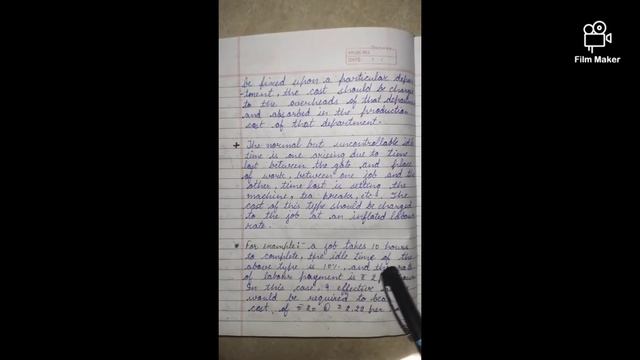 Film Maker
DATE
be fixed upon a particular depar
-tment, the cost should be charge
to the overheads of that department
and absorbed in the production
cost of that department.
+ The normal but uncontrollable idle
time is one arising due to time
lost between the gate and place
of work, between one job and the
other, time lost is setting the
machine, tea breaks, etc. The
cost of this type should be charged
to the job at an inflated labour
rate.
* For example:- a job takes 10 hours
to complete, the idle time of the
above type is 10%, and the rate
of labour payment is ₹ 2
In this case, 9 effective
would be required to bear
cost of = 2.22 per